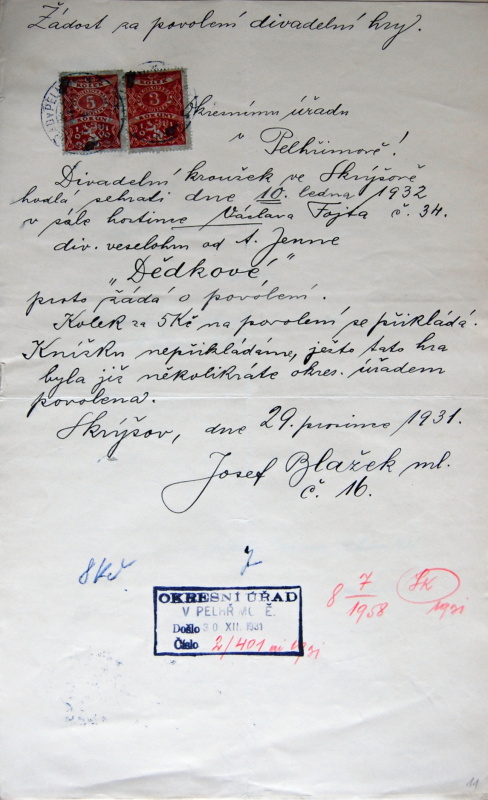 Žádost za povolení divadelní hry.
KOLEK KOLEK
5 3
KORUN KORUNY
Okresnímu úřadu
v Pelhřimově!
Divadelní kroužek ve Skrýšově
hodlá sehrati dne 10. ledna 1932
v sále hostince Václava Fojta č. 34.
div. veselohru od A. Jenne
"Dědkové"
proto žádá o povolení.
Kolek za 5Kč na povolení se přikládá.
Knížku nepřikládáme, ješto tato hra
byla již několikráte okres. úřadem
povolena.
Skrýšov, dne 29. prosince 1931.
Josef Blažek ml.
č. 16.
8 Kč
OKRESNÍ ÚŘAD
V PELHŘIMOVĚ.
Došlo 30 XII. 1931
Číslo 2/401
8 7/1958
11